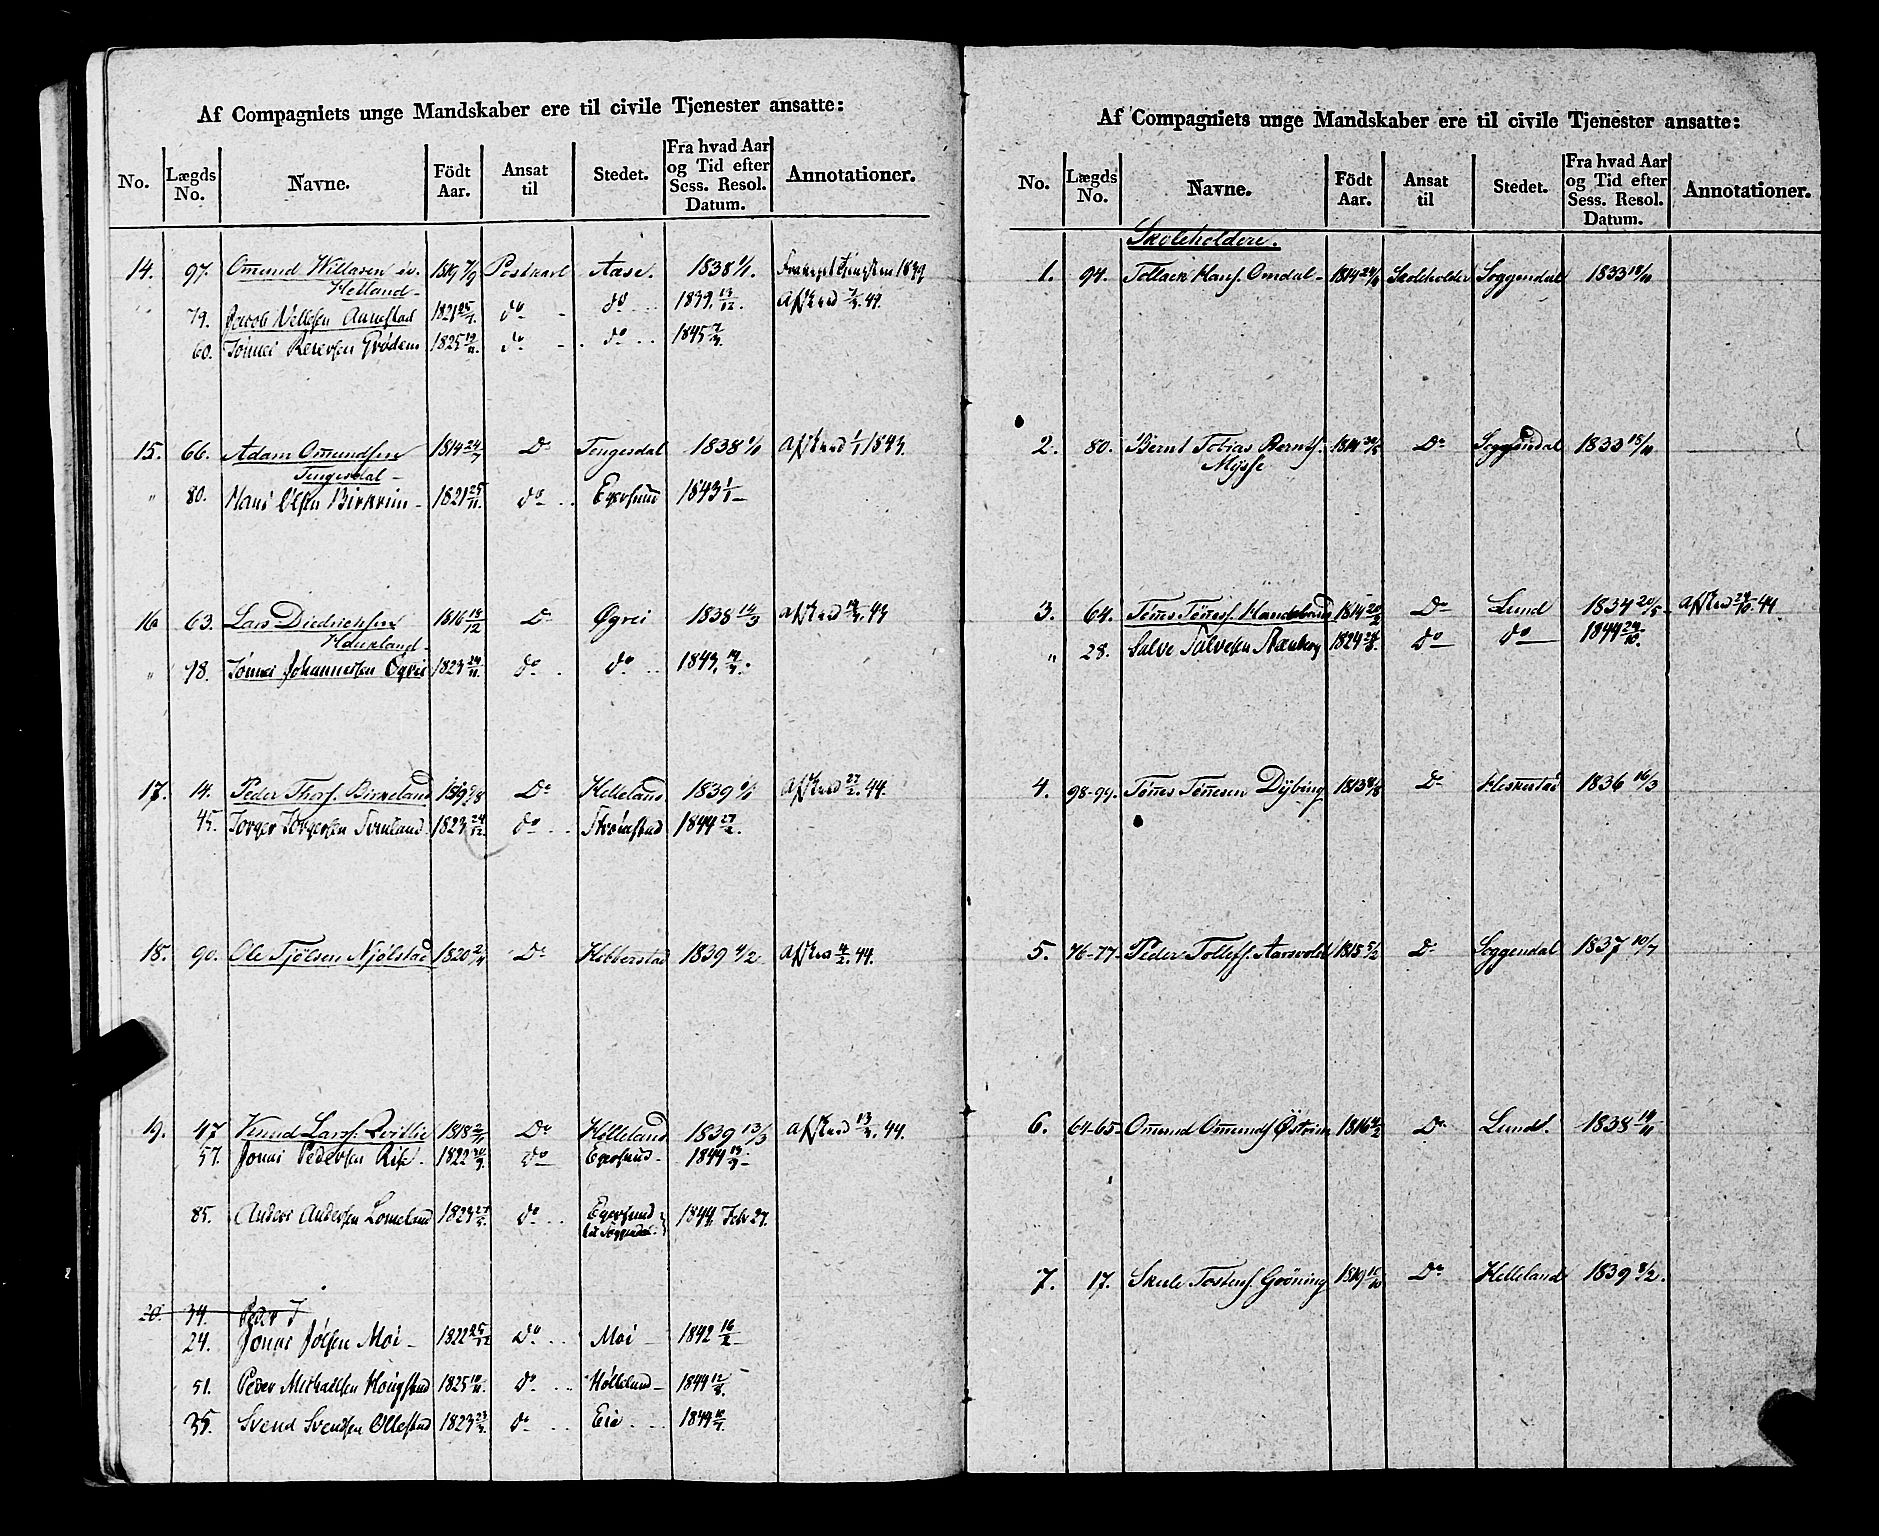 Af Compagniets unge Mandskaber ere til civile Tjenester ansatte:
No. Lægds No. Navne. Födt Aar. Ansat til Stedet. Fra hvad Aar og Tid efter Sess. Resol. Datum. Annotationer.
14. 97. Omund Willasen 1819 7/9 Postkarl Aase. 1838 1/1. 1839
Helland
79. Jacob Nellesen Aamstad 1821 25/7. do do 1839. 13/12. Afsked 44.
60. Tönnes Petersen Grödem 1825 19/11. do do 1845
15. 66. Adam Omundsen 1814 24/7 Do Tengesdal 1838 1/1 Afsked 1/1 1843.
Tengesdal
" 80. Hans Olsen Birkrem 1821 25/11. do Egersund 1843 1/1
16 63. Lars Diedrichsen 1816 18/12 Do Øgrei 1838 14/3 Afsked 44
Hduuland
" 78. Tönnes Johannessen Øgrei 1823 24/11. do do 1843.
17. 14. Peder Thors. Birkeland 1819 Do Helleland 1839 1/1 Afsked 27/2. 44.
45. Torger Torgersen Svanland 1823 24/12. do Strömstad 1844 27/2.
18. 90. Ole Tjölsen Njölstad 1820 Do Hebberstad 1839 4/2 Afsked 4/2. 44.
19. 47 Knud Larss. Qvitlie 1818 Do Helleland 1839 13/3 Afsked 13/3. 44.
57. Jonas Pedersen Rise 1822 do Egersund 1844 13/3
85. Anders Andersen Lomeland 1823 do Egersund 1844 Feb 27.
til Soggendal
20. 34. Peder T
24. Jonas Jölsen Moi 1822 25/12 do Moi 1842 16/2
51. Peder Michaelsen Hougstad 1825 10/11. do Helleland 1844 12/8.
35. Svend Svendsen Ollestad 1823 do Eie 1844
Af Compagniets unge Mandskaber ere til civile Tjenester ansatte:
No. Lægds No. Navne. Födt Aar. Ansat til Stedet. Fra hvad Aar og Tid efter Sess. Resol. Datum. Annotationer.
Skoleholdere.
1. 94. Tollack Hans. Omdal 1814 Skoleholder Soggendal 1833 18/11
2. 80. Bernt Tobias Bernts. 1814 Do Soggendal 1833 18/11
Mysse
3. 64. Tönes Töness. Handeland 1814 20/2 Do Lund 1834 20/5 Afsked 24/10. 44
" 28. Salve Salvesen Skaaberg 1824 do do 1844 24/10.
4. 98-99. Tönes Tönesen Dybing 1813 Do Heskestad 1836 16/3
5. 76-77 Peder Tollefs. Aarsvold 1815 5/2 Do Soggendal 1837 10/7
6. 64-65 Omund Omunds. Östrem 1816 Do Lund. 1838 14/11
7. 17. Skule Tostens. Gröning 1819 15/10 Do Helleland 1839 4/2.